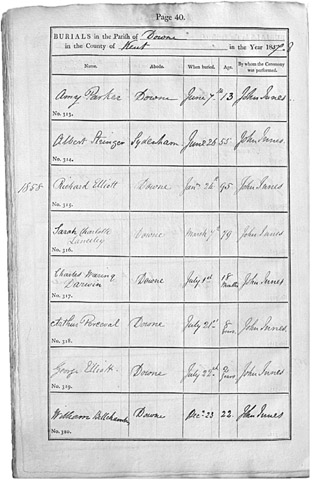 Page 40.
BURIALS in the Parish of Downe
in the County of Kent in the Year 1857 & 8
Name. Abode. When buried. Age. By whom the Ceremony was performed.
Amy Parker Downe June 7th 13 John Innes
No. 313.
Albert Stringer Sydenham June 26 55 John Innes
No. 314.
1858
Richard Elliott Downe Jany 26th 95 John Innes
No. 315.
Sarah Charlotte
Langley Downe March 7th 79 John Innes
No. 316.
Charles Waring
Darwin Downe July 1st 18 Months John Innes
No. 317.
Arthur Perceval Downe July 21st 8 John Innes
No. 318.
George Elliott Downe July 22nd John Innes
No. 319.
William Bellchamber Downe Dec 23 22 John Innes
No. 320.